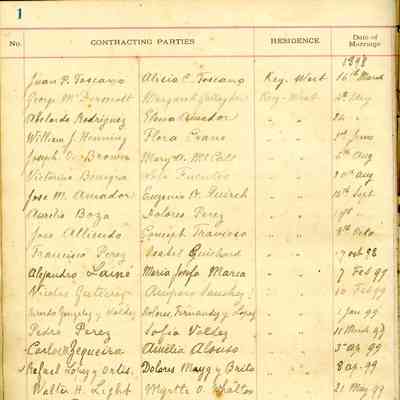 1
No. CONTRACTING PARTIES RESIDENCE Date of Marriage
1898
Juan P. Toscano Alicia C. Toscano Key-West 16th March
George McDermott Margaret Gallagher Key-West
Abelardo Rodriguez Elena Amador " " 24 "
William J. Henning Flora Evans " " June
Joseph Brown Mary A. McCall " " Aug
Victorino Luis Fuentes " " Aug
Jose M. Amador Eugenia A. " " Sept
Aurelio Boza Dolores Perez " "
Jose Allicudo Travieso " "
Francisco Perez Isabel Guichard " " 7 oct 98
Alejandro Lainé Maria Josefa Marca " " 7 Feb 99
Nicolas Gutierrez Amparo Sanchez " " 10 Feb 99
y Valdez Dolores Fernandez y Lopez " " 1 Jan 99
Pedro Perez Sofia Valdez " " 11 March 99
Carlos Zequeira Amelia Alonso " " 3 ap. 99
Rafael Lopez y Ortis. Dolores y Brito " " 8 ap. 99
Walter H. Light Myrtle O. Whalton " " 21 May 99